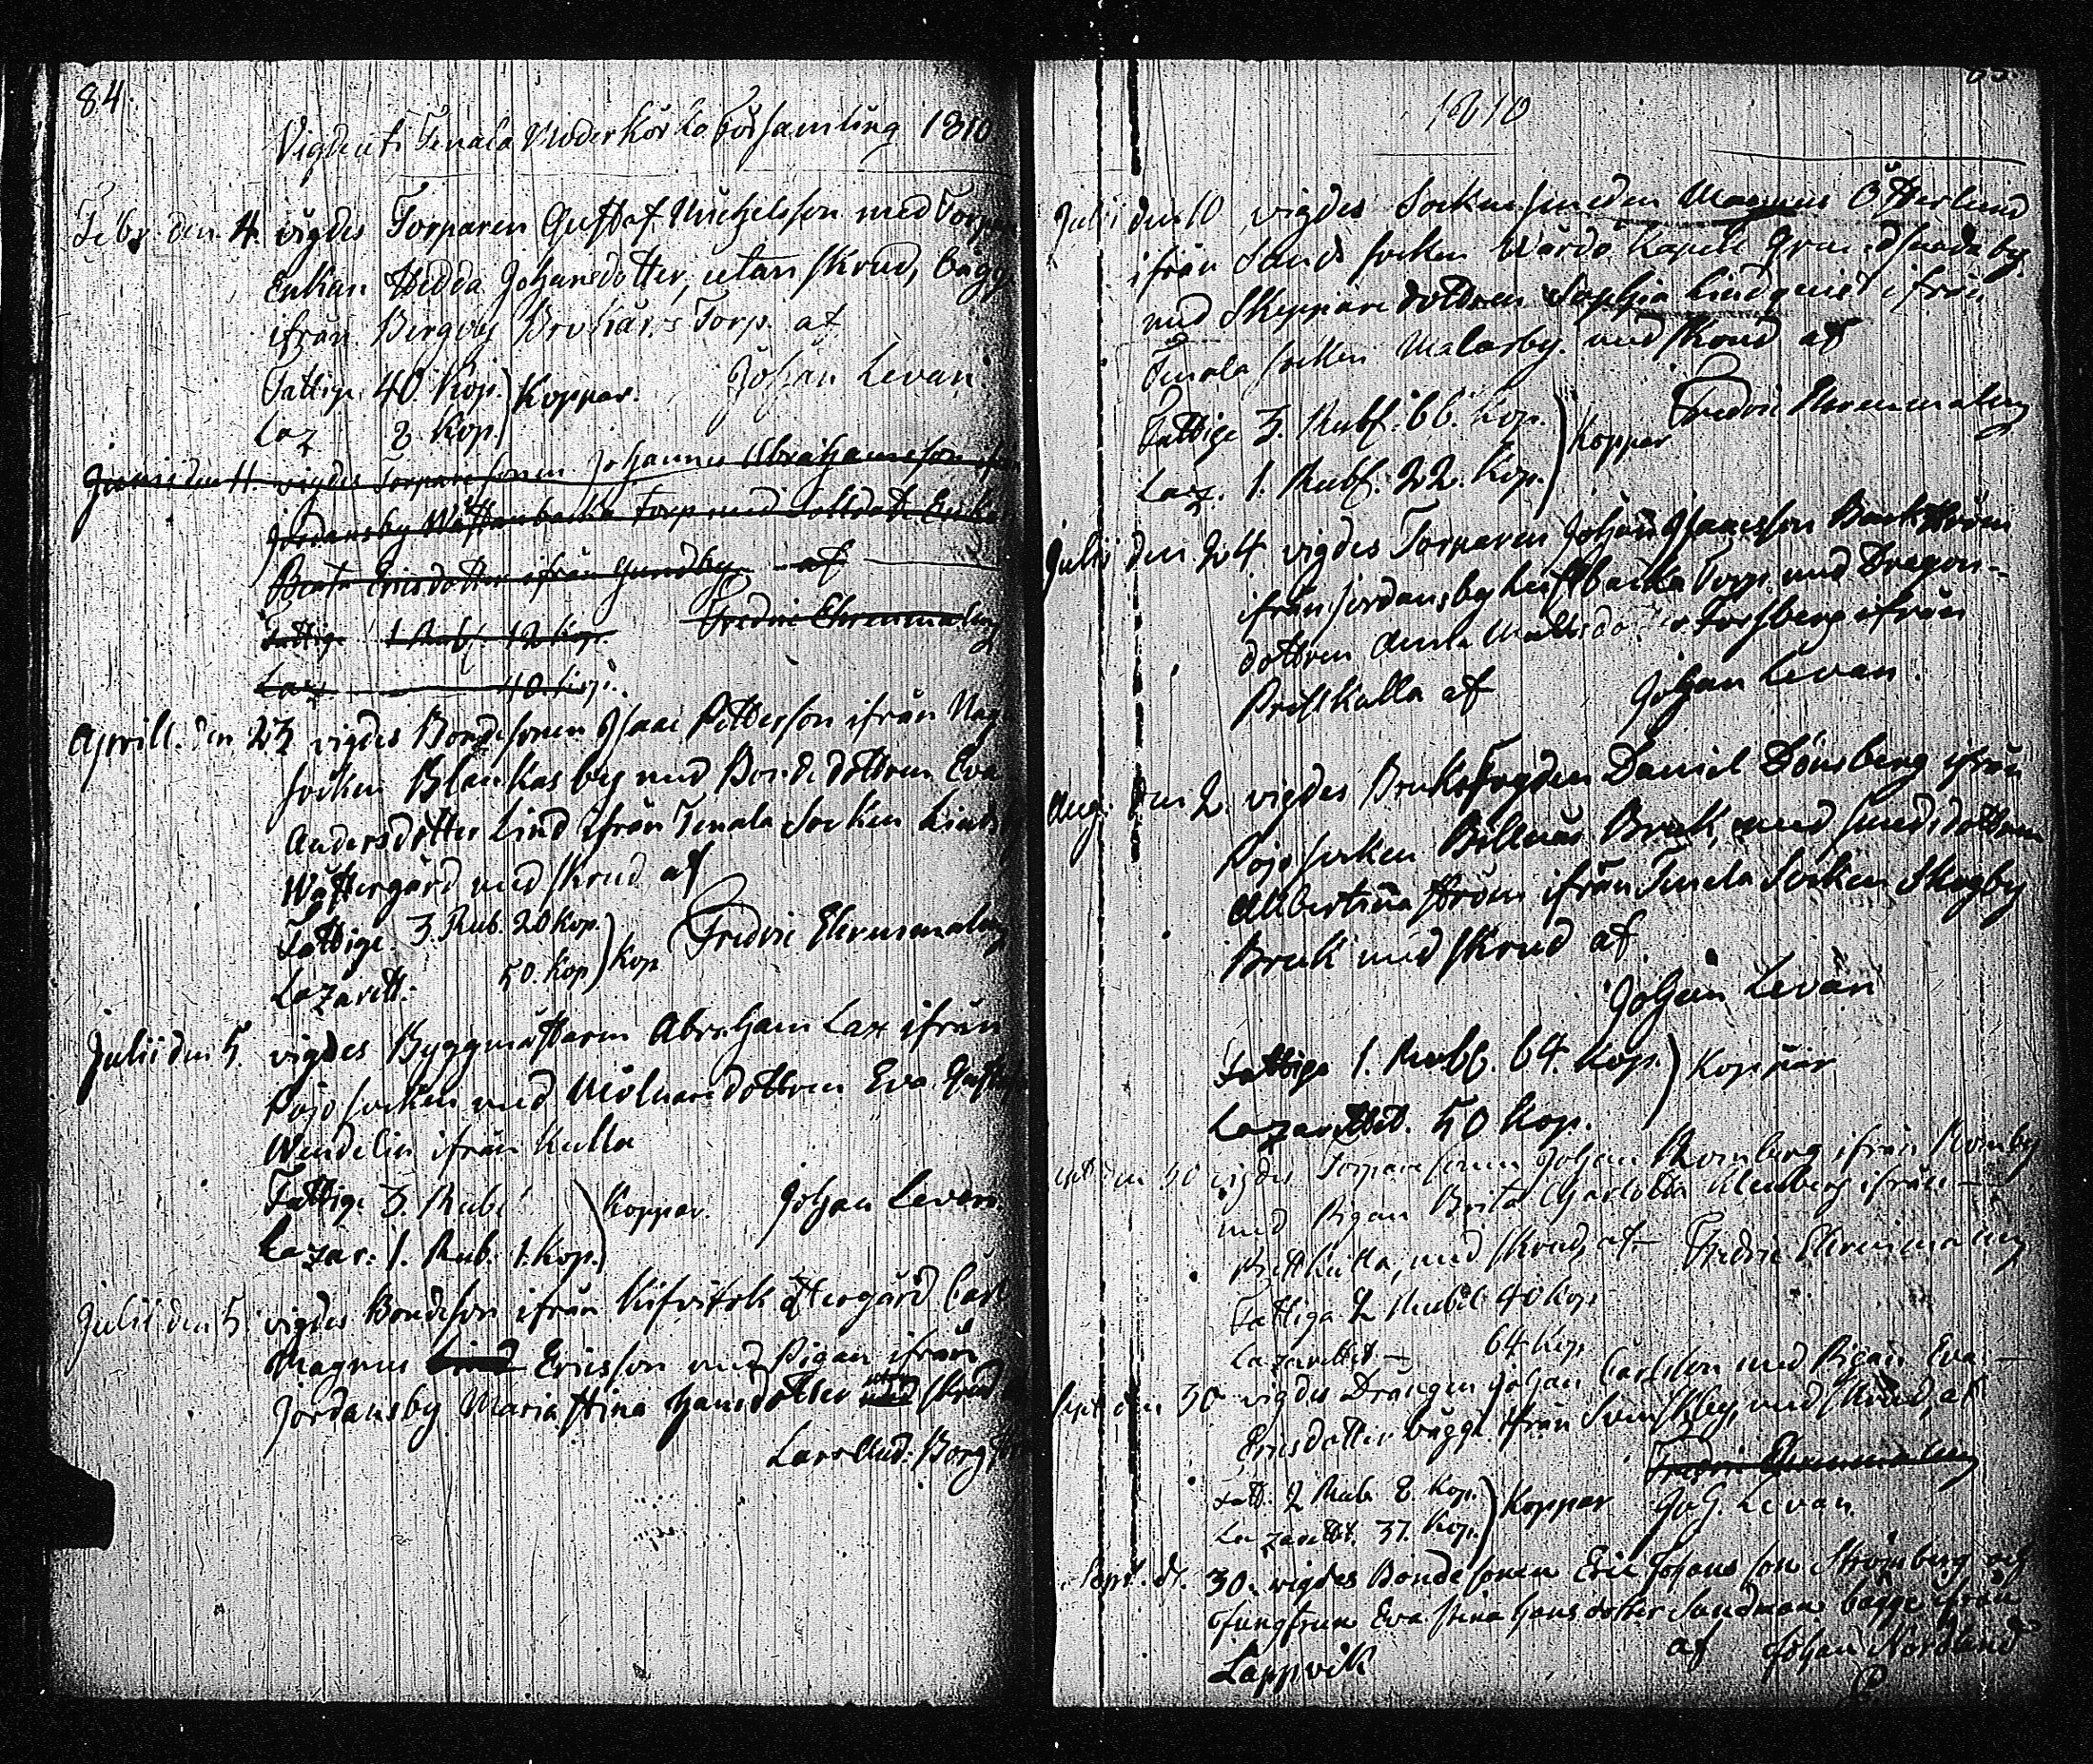 84.
Vigde uti Tenala Moderkörko Församling 1810
Febr. den 4. vigdes Torparen Gustaf Michelsson med Torp
Enkan Hedda Johansdotter, utan skrud, bägg
ifrån Bergby Torp. af
Fattige 40 Kop. Koppar. Johan Levan.
Laz 8 Kop.
Junii den 11. vigdes Torparesonen Johannes Abrahamsson
Jordansby Torp med Solldats Enka
Beata Ericsdotter ifrån Gundby af
Fattige 1 Rub. 12 Kop. Fredric Ehrenmalm
Laz 40 Kop.
Aprill. den 23 vigdes Bondesonen Isaac Pettersson ifrån
socken Blankas by med Bondedottren Eva
Andersdotter Lind ifrån Tenala Socken
Wästergård med skrud af
Fattige 3. Rub. 20 Kop. Kop Fredric Ehrenmalm
Lazarett. 50. Kop
Julii den 5. vigdes Byggmästaren Abraham Lax ifrån
Pojo socken med Mölnaredottren Eva
Wendelin ifrån Kulla
Fattige 3. Rub. Koppar. Johan Levan.
Lazar: 1. Rub. 1. Kop.
Julii den 5. vigdes Bondeson ifrån Västergård Carl
Magnus Ericsson med Pigan ifrån
Jordansby Maria Stina Hansdotter utan skrud
Lars And: Borg
1810
Julii den 10 vigdes Sockensmeden Magnus Österlund
ifrån Sunds socken Wårdö Kapell by
med Skepparedottren Sophia Lindquist ifrån
Tenala socken Malarby. med skrud af
Fattige 3. Rubl. 66. Kop. Koppar Fredric Ehrenmalm
Laz. 1. Rubl. 22. Kop.
Julii den 24 vigdes Torparen Johan Isaacsson Backström
ifrån Jordansby backa Torp med Dragon-
dottren Forsberg ifrån
Prestkulla af Johan Levan.
Aug. den 2. vigdes Bruksfogden Daniel Dönsberg ifrån
Pojo socken Billnäs Bruk, med smedsdottren
Albertina Ström ifrån Tenala Socken Skogby
Bruk med skrud af
Johan Levan
Fattige 1. Rubl. 64. Kop. Koppar
Lazarettet. 50 Kop.
den 30 vigdes Torparesonen Johan Romberg ifrån Romby
med Pigan Brita Charlotta ifrån
, med skrud, af Fredric Ehrenmalm
Fattiga 2 Rubel 40 Kop
Lazarettet — 64 Kop
Sept den 30 vigdes Drängen Johan Carlsson med Pigan Eva
Ericsdotter bägge ifrån Svenskby, med skrud, af
Fredric Ehrenmalm
Fatt. 2 Rub. 8. Kop. Koppar Joh. Levan.
Lazarettet. 37. Kop.
Sept. d. 30. vigdes Bondesonen Eric Johansson Strömberg och
Jungfrun Eva Stina Hansdotter Sandman bägge ifrån
Lappvik af Johan Nordlund